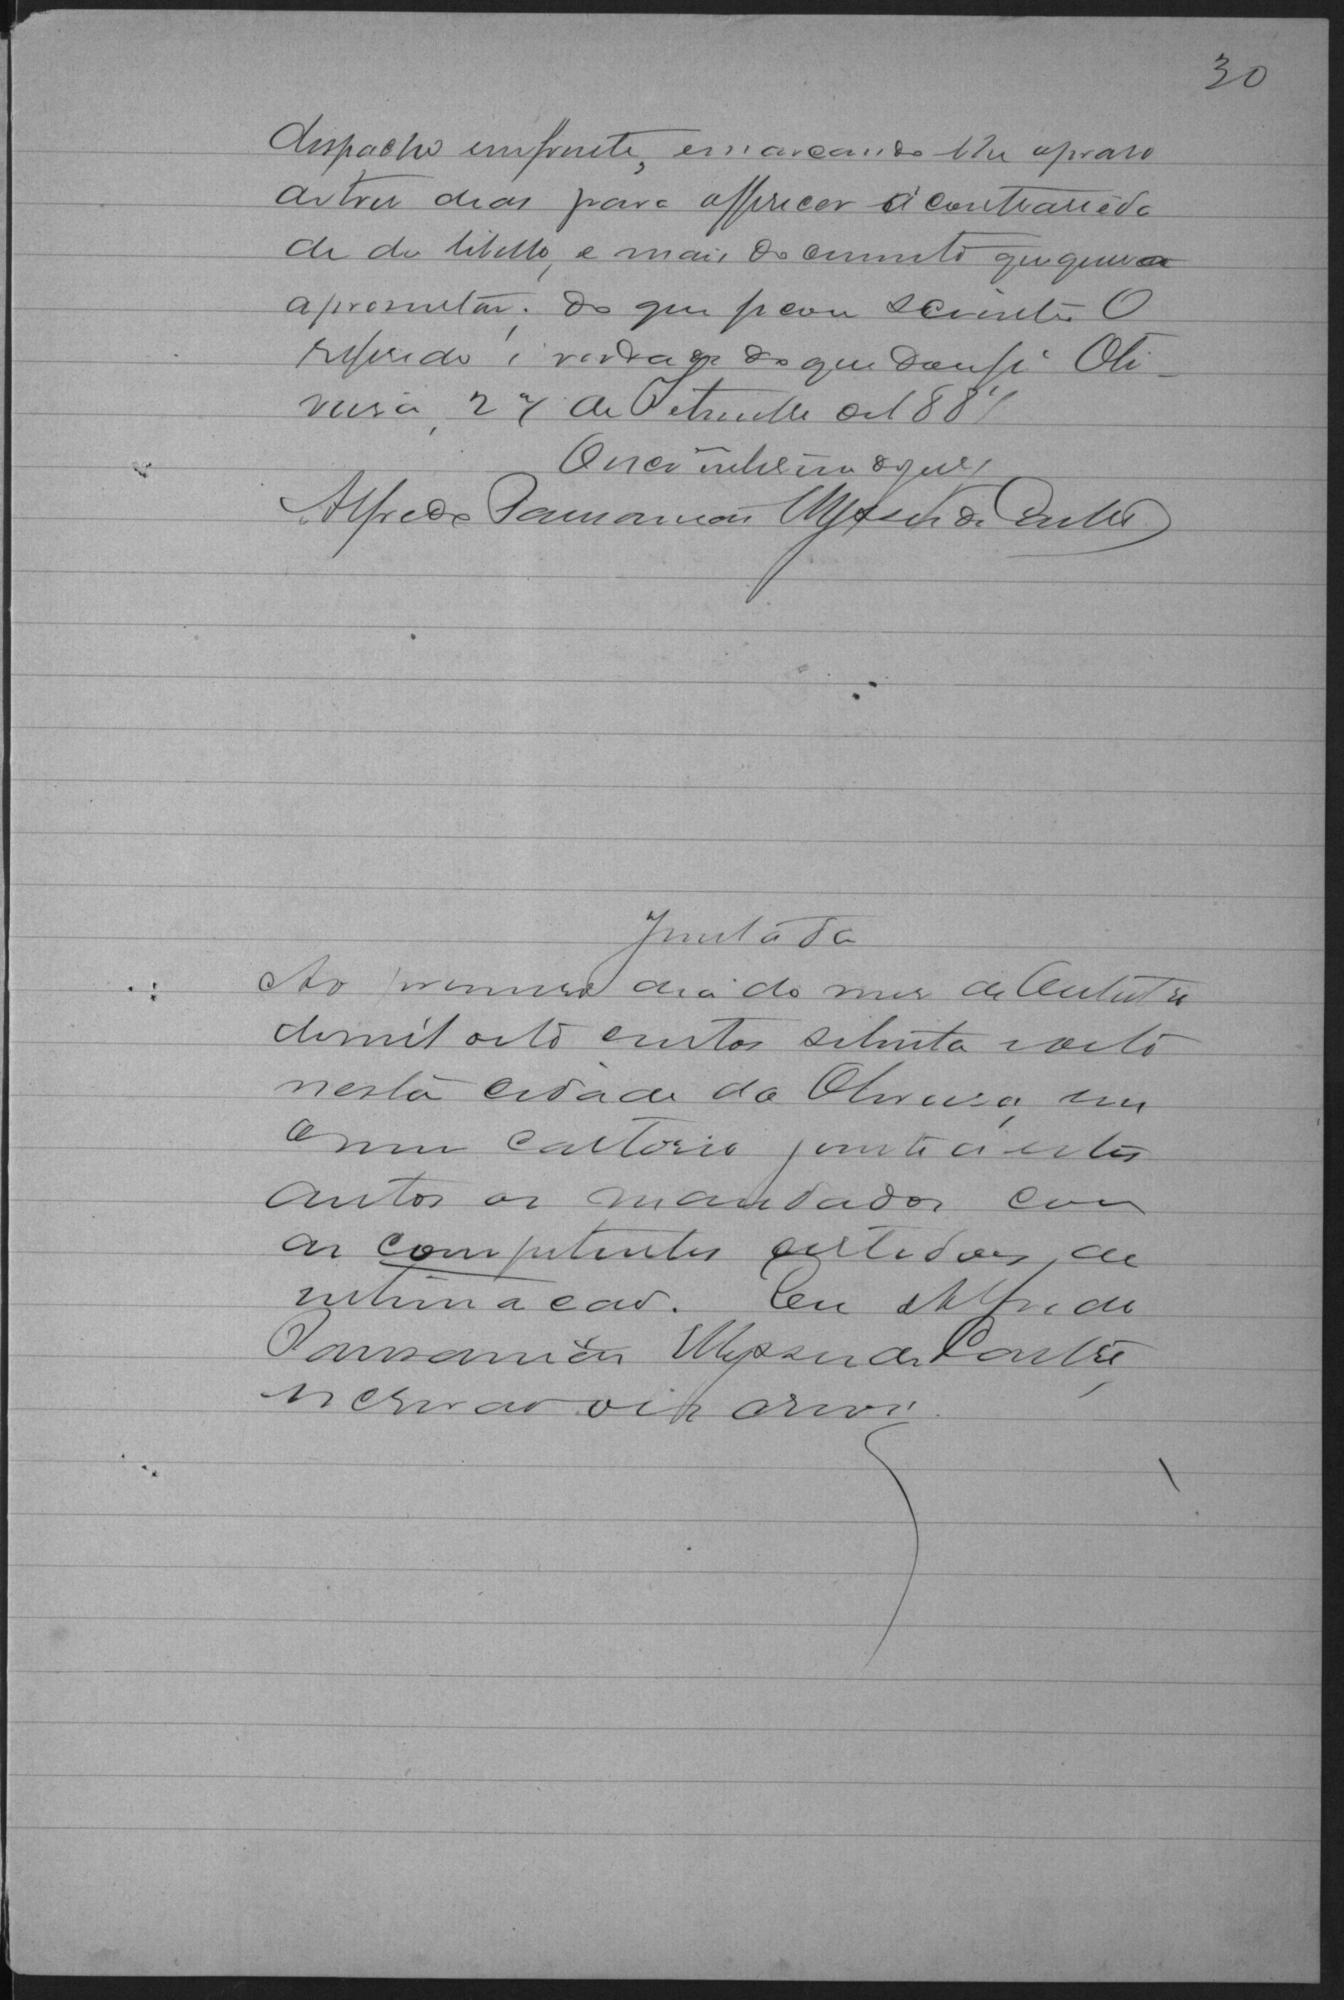 30
despacho emfrente, e marcando lhe o praso
de tres dias para offerecer a contrarieda
de do libello, e mais documento que queira
apresentar; do que ficou sciente. O
referido é verdade do que dou fé. Oli-
veira, 27 de Setembro de 1887
O escrivão do jury
Alfredo Pausanias Ulysses de Castro
Juntada
Ao primeiro dia do mes de Outubro
de mil oito centos oitenta e
nesta cidade da Oliveira, em
o meu cartorio juntei a estes
autos os mandados com
as competentes certidoes de
intimacao. Eu Alfredo
Pausanias Ulysses de Castro,
escrivao o escrevi.